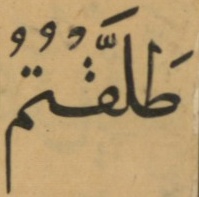 طَلَّقْتُمُ